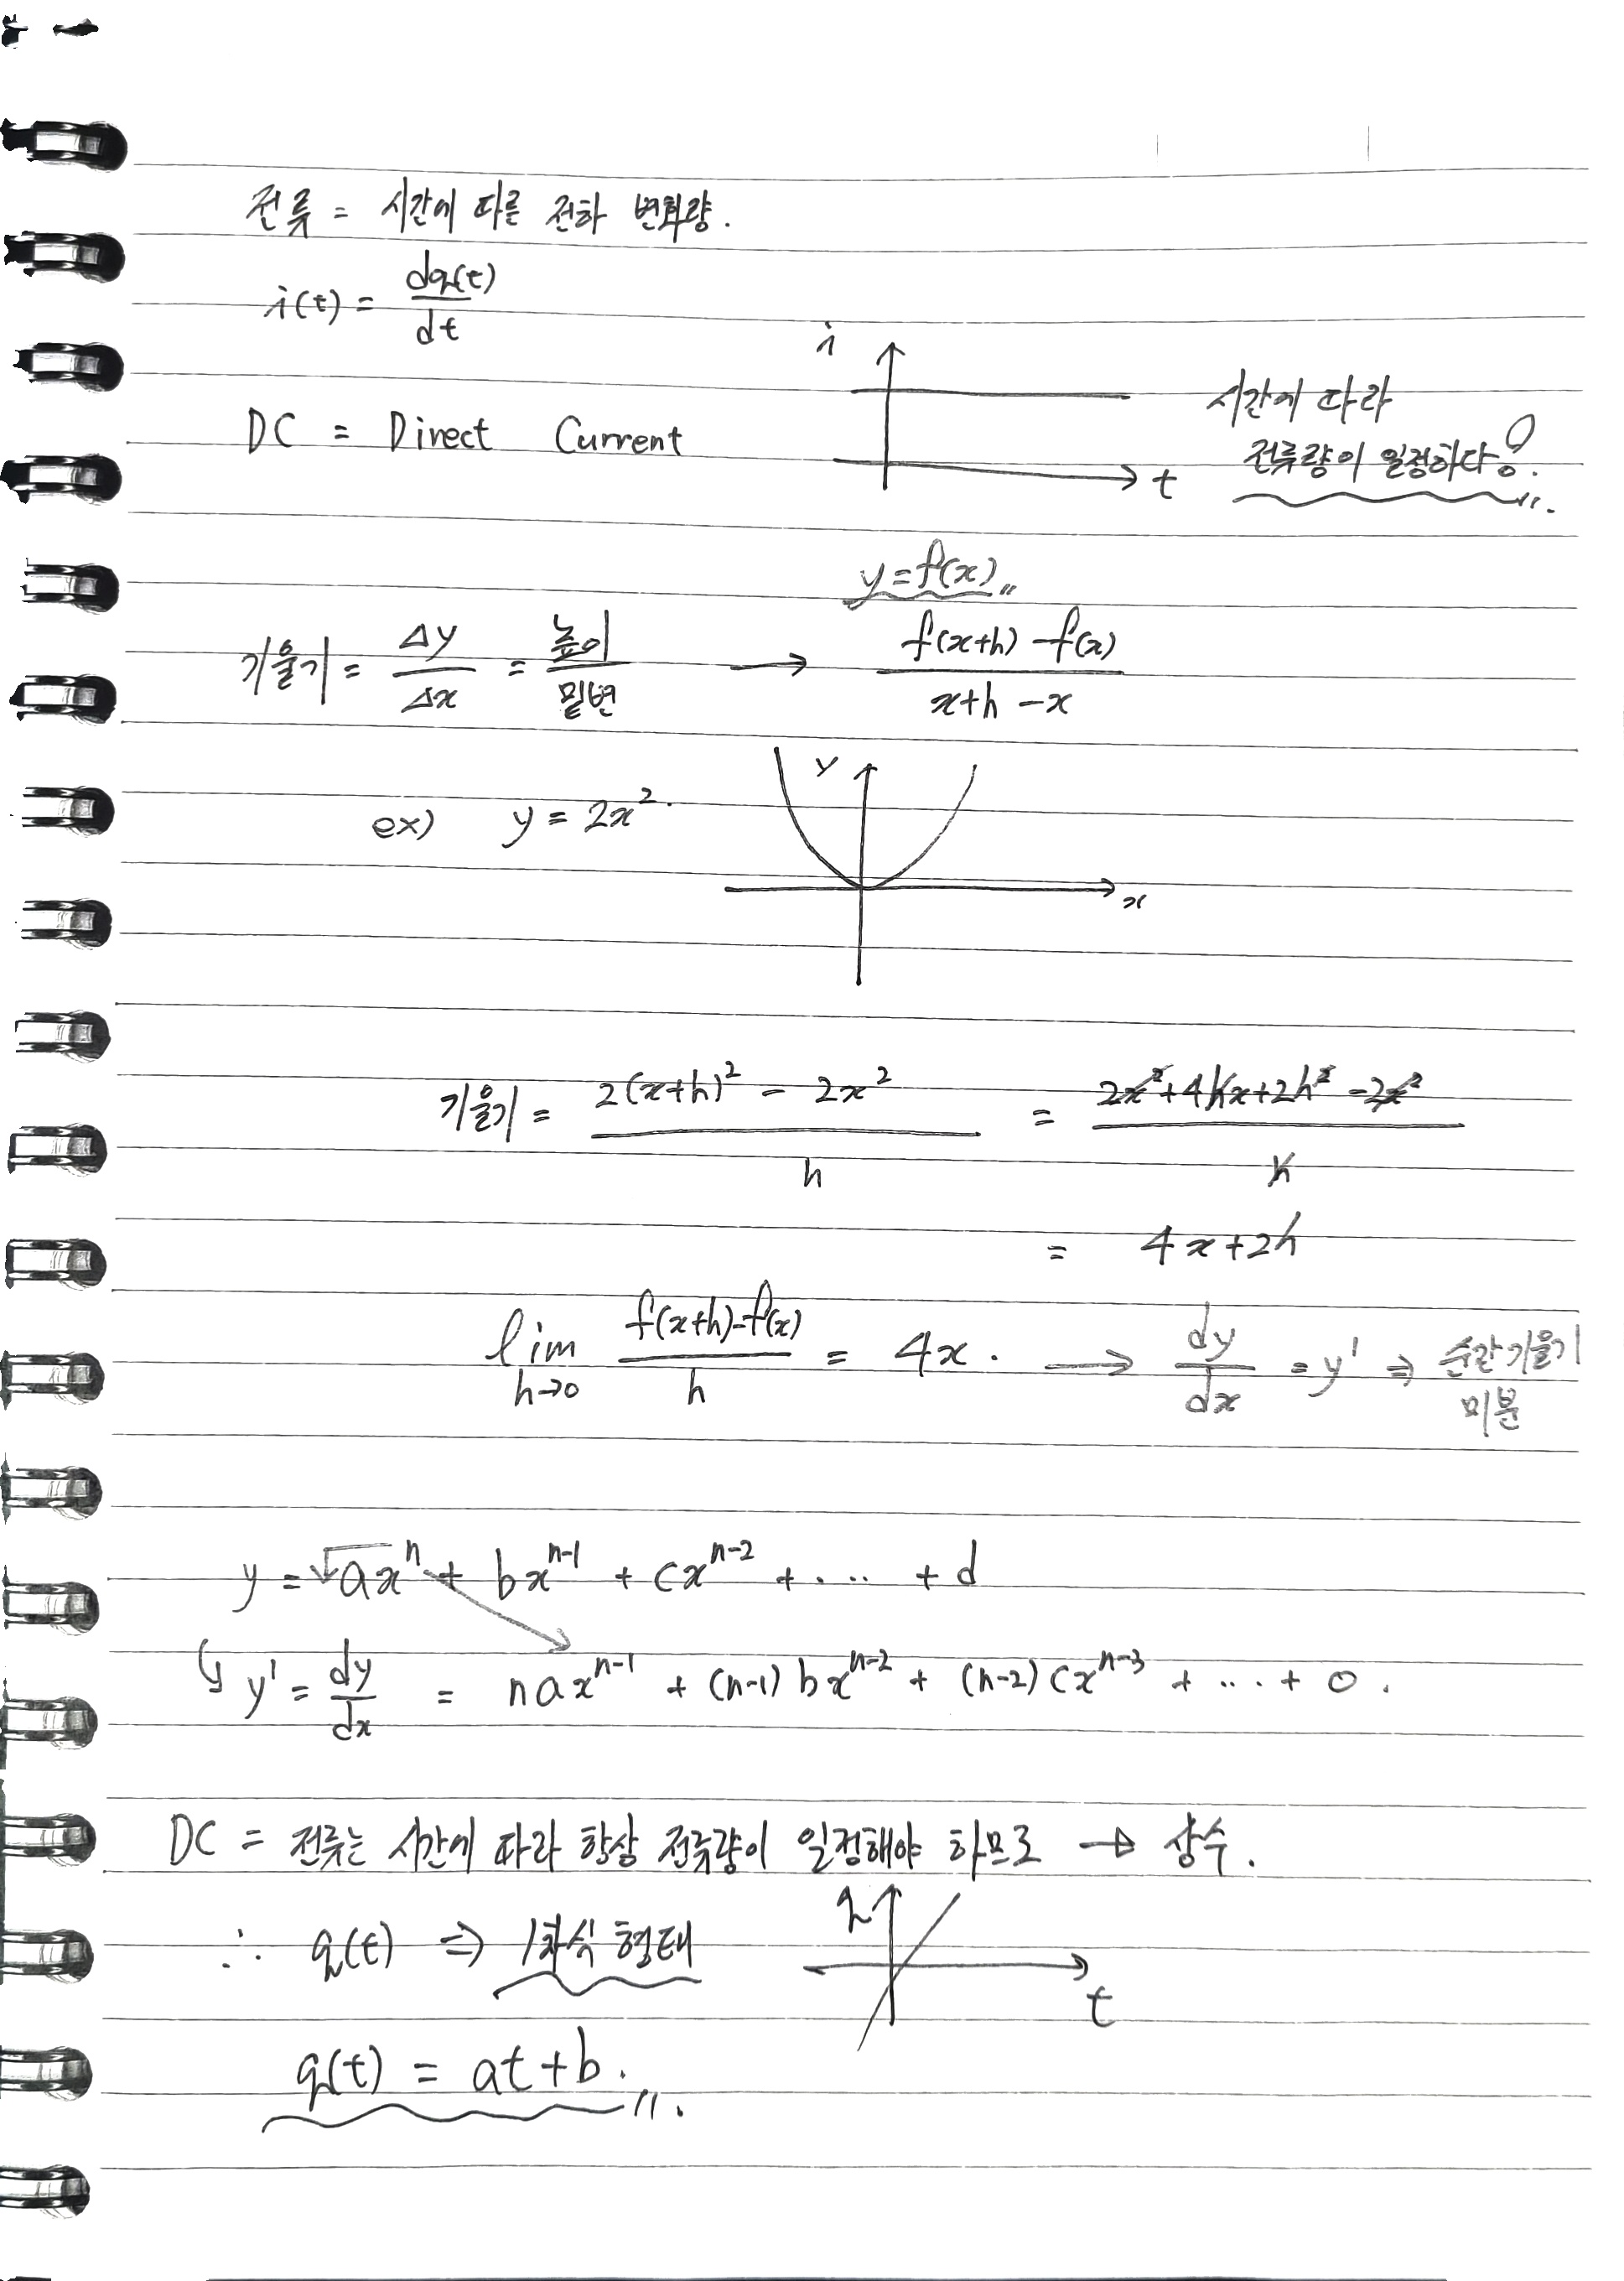 전류 = 시간에 따른 전하 변화량.
i(t) = dq(t)/dt
i
t
시간에 따라
전류량이 일정하다!
DC = Direct Current
y = f(x)
기울기 = Δy/Δx = 높이/밑변 → (f(x+h) - f(x))/(x+h-x)
ex) y = 2x².
y
x
기울기 = (2(x+h)² - 2x²)/h = (2x²+4hx+2h²-2x²)/h
= 4x+2h
lim h→0 (f(x+h)-f(x))/h = 4x. → dy/dx = y' ⇒ 순간기울기
미분
y = axⁿ + bxⁿ⁻¹ + cxⁿ⁻² + .... + d
↳ y' = dy/dx = naxⁿ⁻¹ + (n-1)bxⁿ⁻² + (n-2)cxⁿ⁻³ + ... + 0.
DC = 전류는 시간에 따라 항상 전류량이 일정해야 하므로 → 상수.
∴ q(t) ⇒ 1차식 형태
q
t
q(t) = at+b.